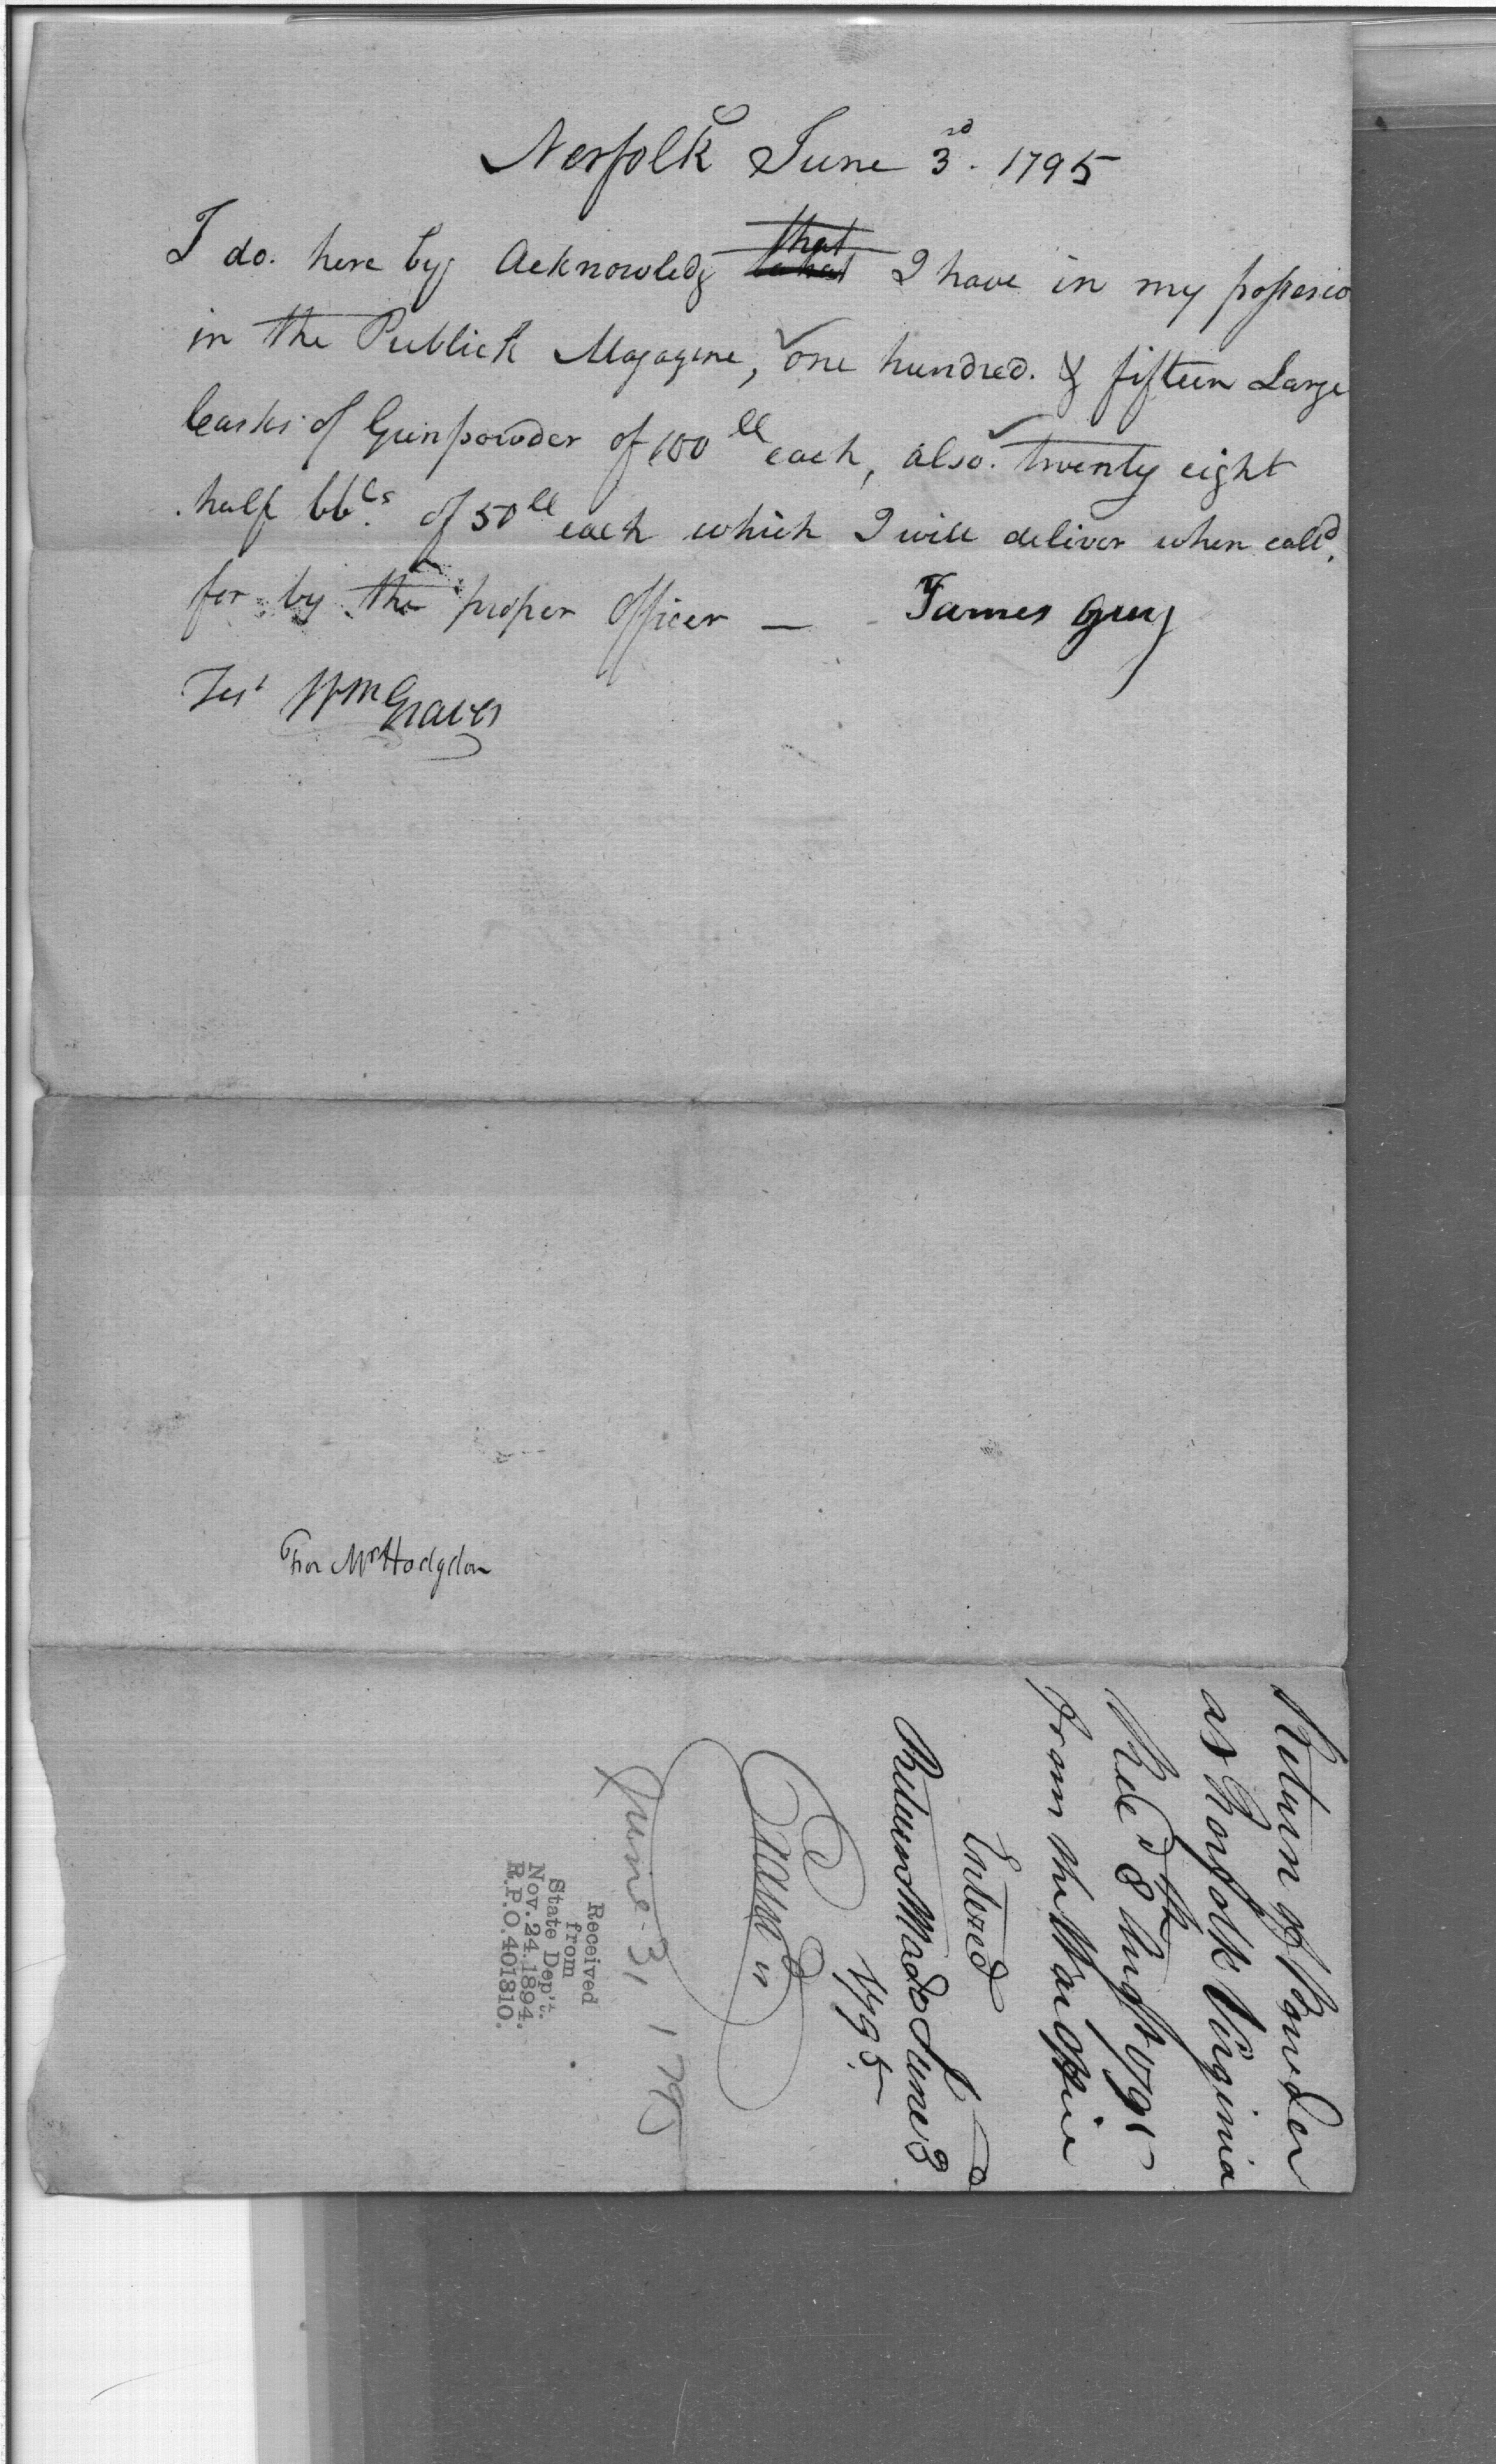 Norfolk June 3rd. 1795
I do. here by Acknowledg that I have in my possesio
in the Publick Magazine, one hundred. & fifteen Large
Casks of Gunpowder of 100 ll each, also. twenty eight
half bbls. of 50 ll each which I will deliver when calld.
for by the proper Officer — James Guy
Test Wm Graves
For Mr Hodgdon
Return of Powder
at Norfolk Virginia
Recd 8th Augst 1795
from the War Office
Entered
Return Made June 3d
1795
June 3, 1795
Received
from
State Dep't.
Nov. 24. 1894.
R.P.O. 401810.